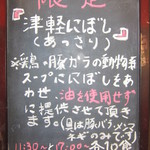 限定
『津軽にぼし
(あっさり)』
※鶏・豚ガラの動物系
スープににぼしをあ
わせ、油を使用せず
に提供させて頂き
ます。(具は豚バラ、メンマ
ネギのみです)
11:30〜と17:00〜各10食